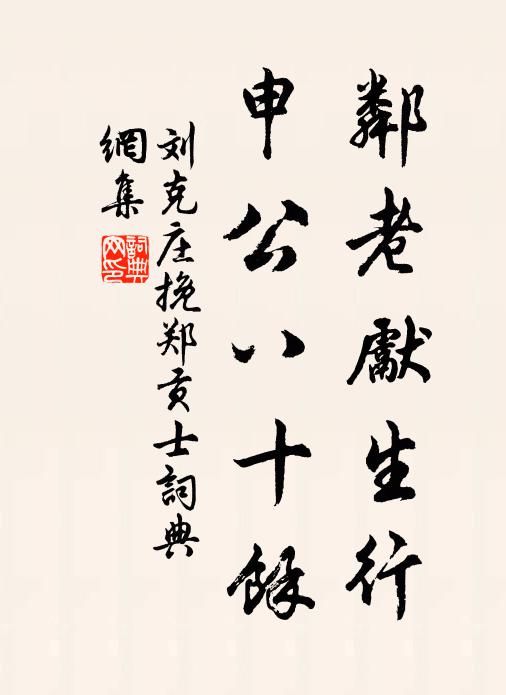 鄰老獻生行
申公八十餘
刘克庄挽郑贡士詞典
網集
詞典网印